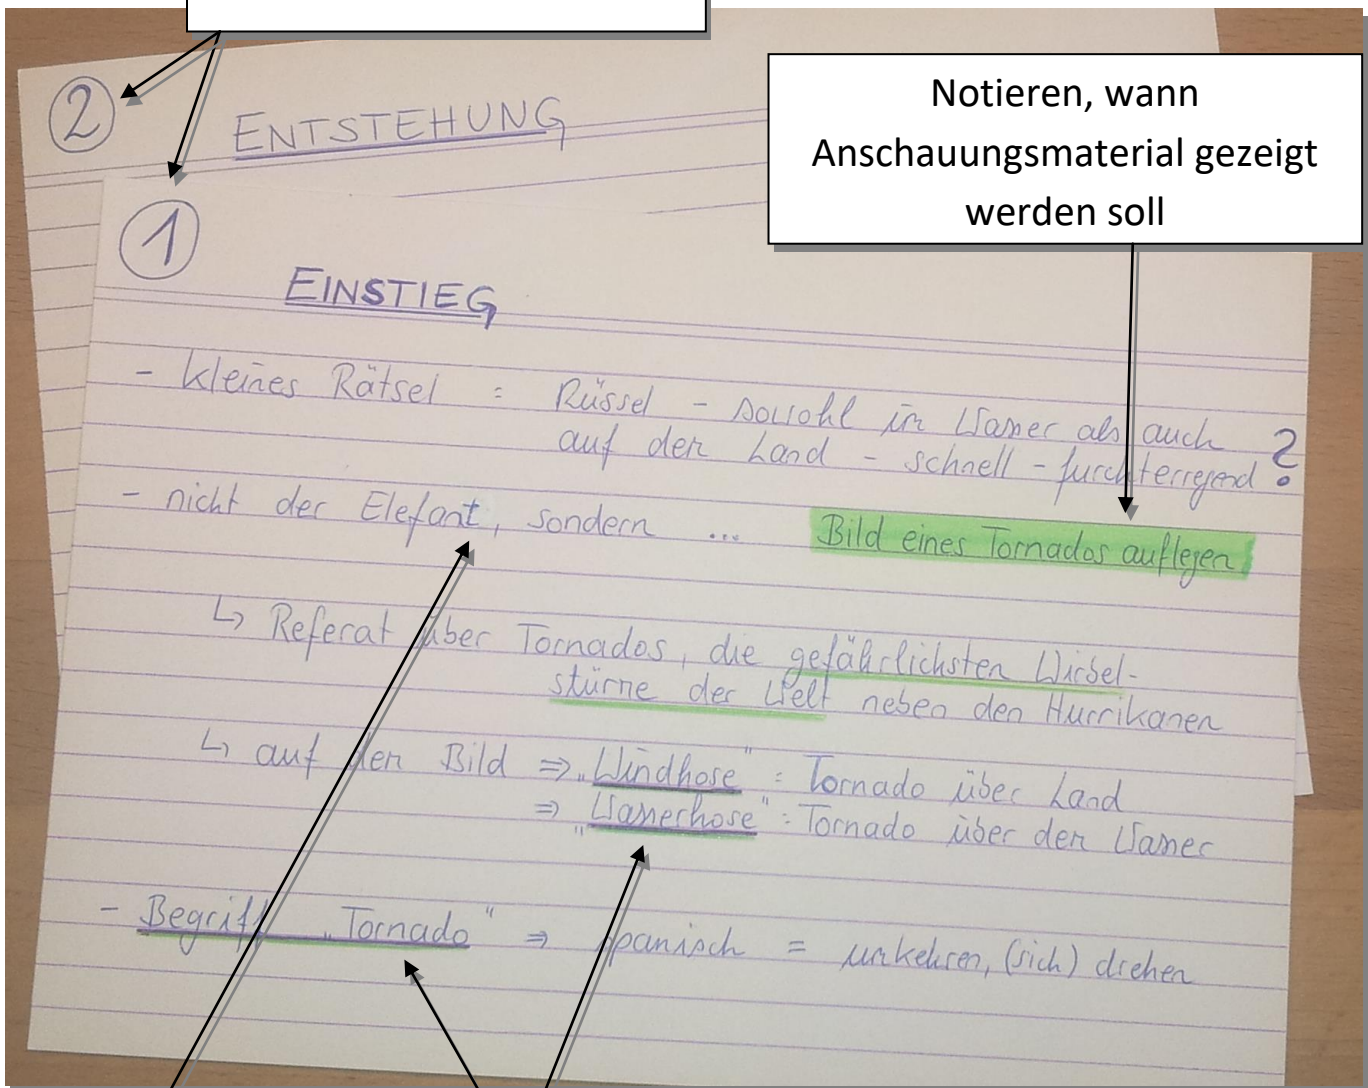 Notieren, wann
Anschauungsmaterial gezeigt
werden soll
2
ENTSTEHUNG
1
EINSTIEG
- kleines Rätsel : Rüssel - sowohl im Wasser als auch
auf dem Land - schnell - furchterregend ?
- nicht der Elefant, sondern ... Bild eines Tornados auflegen!
↳ Referat über Tornados, die gefährlichsten Wirbel-
stürme der Welt neben den Hurrikanen
↳ auf dem Bild ⇒ „Windhose" : Tornado über Land
⇒ „Wasserhose" : Tornado über dem Wasser
- Begriff „Tornado" ⇒ spanisch = umkehren, (sich) drehen